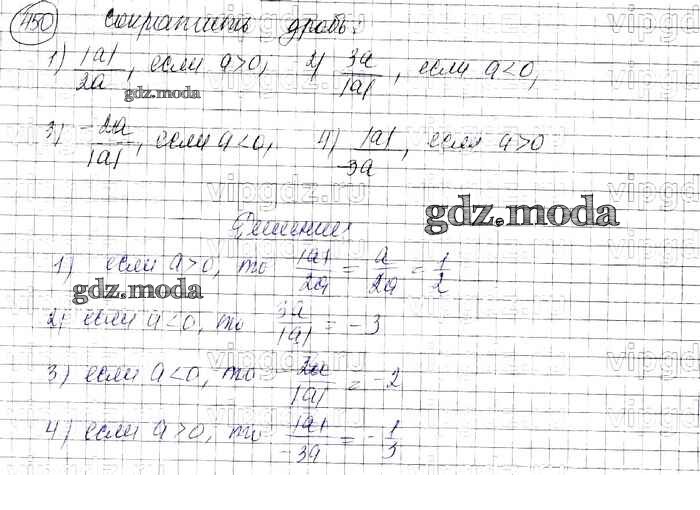 450 Сократить дробь:
1) |a|/2a, если a>0, 2) 3a/|a|, если a<0,
gdz.moda
3) -2a/|a|, если a<0, 4) |a|/-3a, если a>0
vipgdz.ru
gdz.moda
Решение
1) если a>0, то |a|/2a = a/2a = 1/2
gdz.moda
2) если a<0, то 3a/|a| = -3
3) если a<0, то /|a| = -2
4) если a>0, то |a|/-3a = -1/3